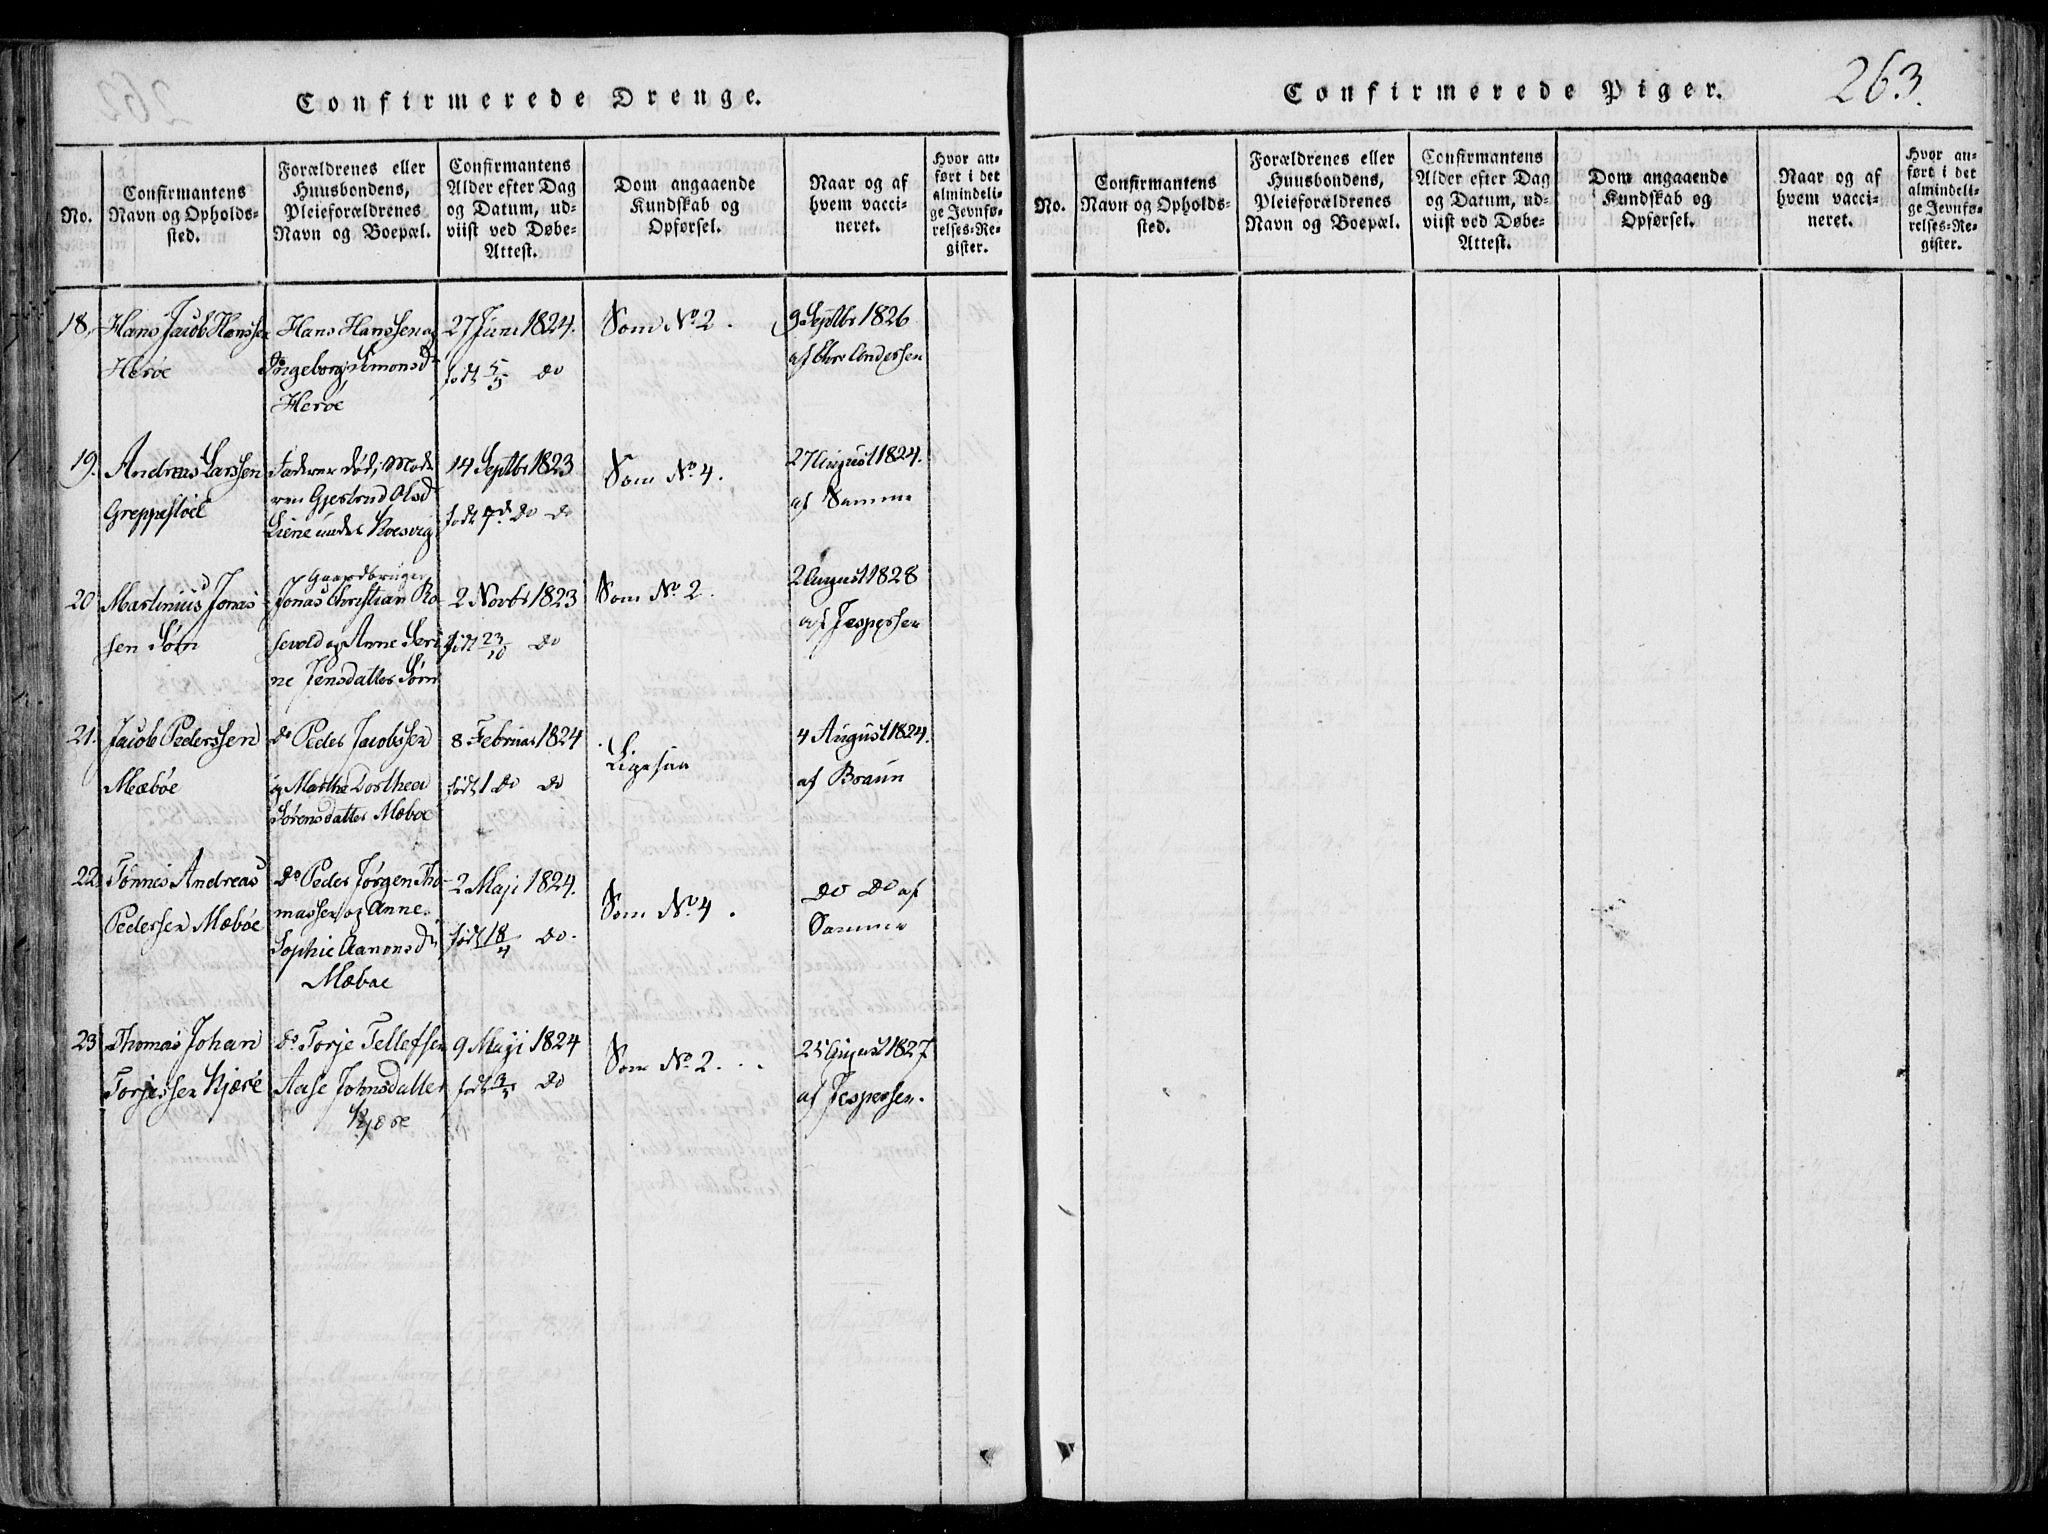 Confirmerede Drenge.
No.
Confirmantens
Navn og Opholds-
sted.
Forældrenes eller
Huusbondens,
Pleieforældrenes
Navn og Boepæl.
Confirmantens
Alder efter Dag
og Datum, ud-
viist ved Døbe-
Attest.
Dom angaaende
Kundskab og
Opførsel.
Naar og af
hvem vacci-
neret.
Hvor an-
ført i det
almindeli-
ge Jevnfø-
relses-Re-
gister.
18.
Hans Jacob Hanssen
Herøe
Hans Hanssen og
Ingeborg Simonsd
Herøe
27 Juni 1824.
født 5/5 do
Som No 2.
9 Septbr 1826
af Chr Anderssen
19.
Andreas Larssen
Greppestøel
Faderen død, Mode
ren Gjertrud Olsd
Liene under Roesvig
14 Septbr 1823
født 7d do do
Som No 4.
27 August 1824.
af Samme
20
Martinius Jonas
sen Søm
Gaardbruger
Jonas Christian Ro-
sevold og Anne Seri
ne Jensdatter Søm
2 Novbr 1823
født 23/10 do
Som No 2.
2 August 1828
af Jespersen
21.
Jacob Pederssen
Mæbøe
do Peder Jacobssen
og Marthe Dorthea
Sørensdatter Mæbøe
8 Februar 1824
født 1 do do
Ligesaa
4 August 1824.
af Braun
22.
Tønnes Andreas
Pedersen Mæbøe
do Peder Jørgen Tho-
massen og Anne
Sophie Aanonsd
Mæbøe
2 Maji 1824.
født 18/4 do.
Som No 4.
do do af
Samme
23
Thomas Johan
Torjessen Kjære
do Torje Tellefsen
Aase Johnsdatter
Kjære
9 Maji 1824
født 3/5 do
Som No 2.
25 August 1827
af Jespersen.
Confirmerede Piger.
263.
No.
Confirmantens
Navn og Opholds-
sted.
Forældrenes eller
Huusbondens,
Pleieforældrenes
Navn og Boepæl.
Confirmantens
Alder efter Dag
og Datum, ud-
viist ved Døbe-
Attest.
Dom angaaende
Kundskab og
Opførsel.
Naar og af
hvem vacci-
neret.
Hvor an-
ført i det
almindeli-
ge Jevnfø-
relses-Re-
gister.